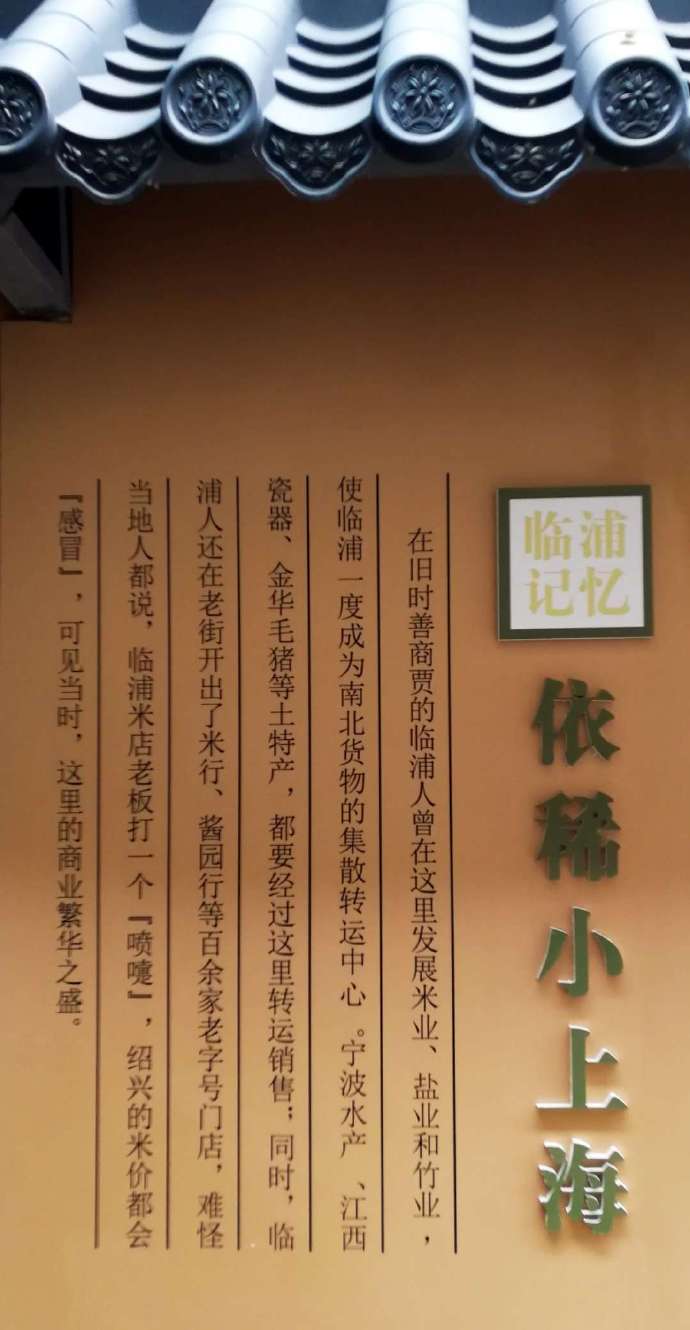 临浦
记忆
依稀小上海
在旧时善商贾的临浦人曾在这里发展米业、盐业和竹业，
使临浦一度成为南北货物的集散转运中心。宁波水产、江西
瓷器、金华毛猪等土特产，都要经过这里转运销售；同时，临
浦人还在老街开出了米行、酱园行等百余家老字号门店，难怪
当地人都说，临浦米店老板打一个『喷嚏』，绍兴的米价都会
『感冒』，可见当时，这里的商业繁华之盛。